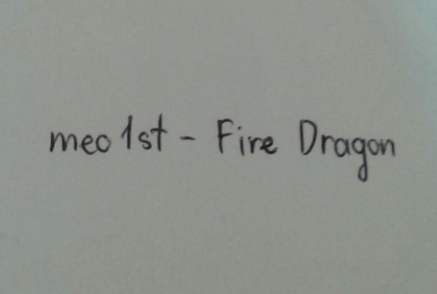 meo1st - Fire Dragon